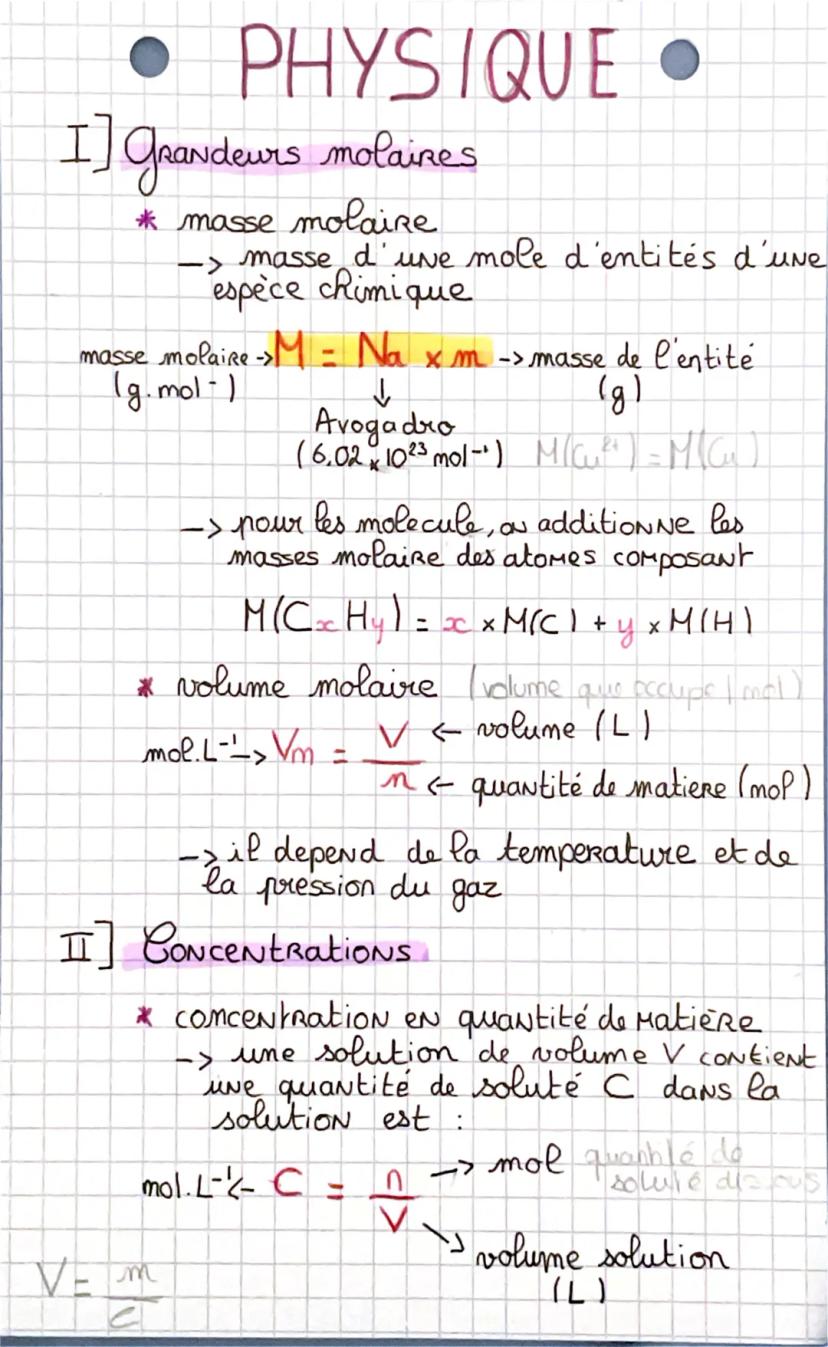 PHYSIQUE
I] Grandeurs molaires
* masse molaire
-> masse d'une mole d'entités d'une
espèce chimique
masse molaire -> M = Na x m -> masse de l'entité
(g.mol-) ↓ (g)
Avogadro
(6,02 x 10²³ mol-¹) M(Cu²⁺) = M(Cu)
-> pour les molecule, on additionne les
masses molaire des atomes composant
M(CxHy) = x x M(C) + y x M(H)
* volume molaire (volume que occupe 1 mol)
mol.L-¹-> Vm = V/n <- volume (L)
<- quantité de matiere (mol)
-> il depend de la temperature et de
la pression du gaz
II] Concentrations
* concentration en quantité de matière
-> une solution de volume V contient
une quantité de soluté C dans la
solution est :
mol.L-¹<- C = n/V -> mol quantité de
soluté dissous
volume solution
(L)
V = m/C